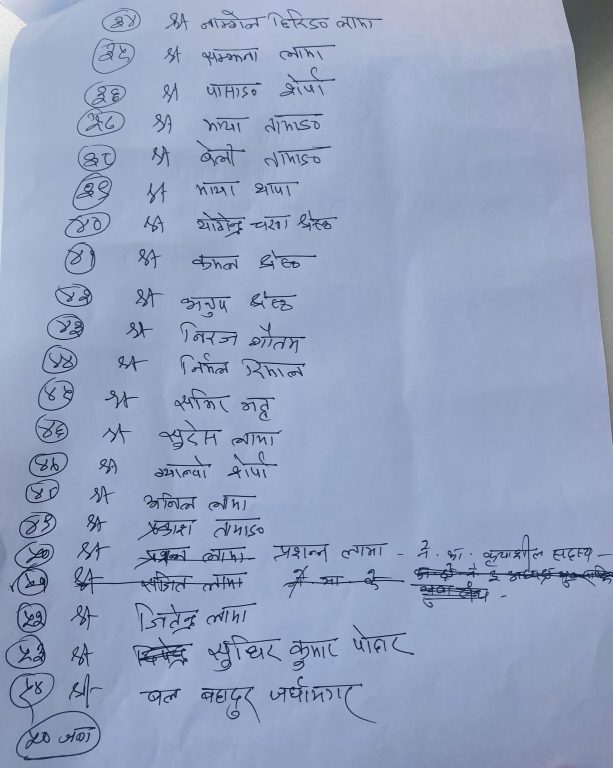 ३४ श्री नाम्गेल छिरिङ लामा
३५ श्री सम्झना लामा
३६ श्री पासाङ शेर्पा
३७ श्री माया तामाङ
३८ श्री बेली तामाङ
३९ श्री माया थापा
४० श्री योगेन्द्र श्रेष्ठ
४१ श्री कमल श्रेष्ठ
४२ श्री अनुप श्रेष्ठ
४३ श्री निरज गौतम
४४ श्री निर्मल रिमाल
४५ श्री समिर भट्ट
४६ श्री सुदेस लामा
४७ श्री ग्याल्वो शेर्पा
४८ श्री अनिल लामा
४९ श्री प्रकाश तामाङ
५० श्री प्रशन्न लामा - ने. का. कृयाशील सदस्य
५१ श्री संजित लामा
५२ श्री जितेन्द्र लामा
५३ श्री सुधिर कुमार पोद्दार
५४ श्री बल बहादुर जर्घामगर
५० जना